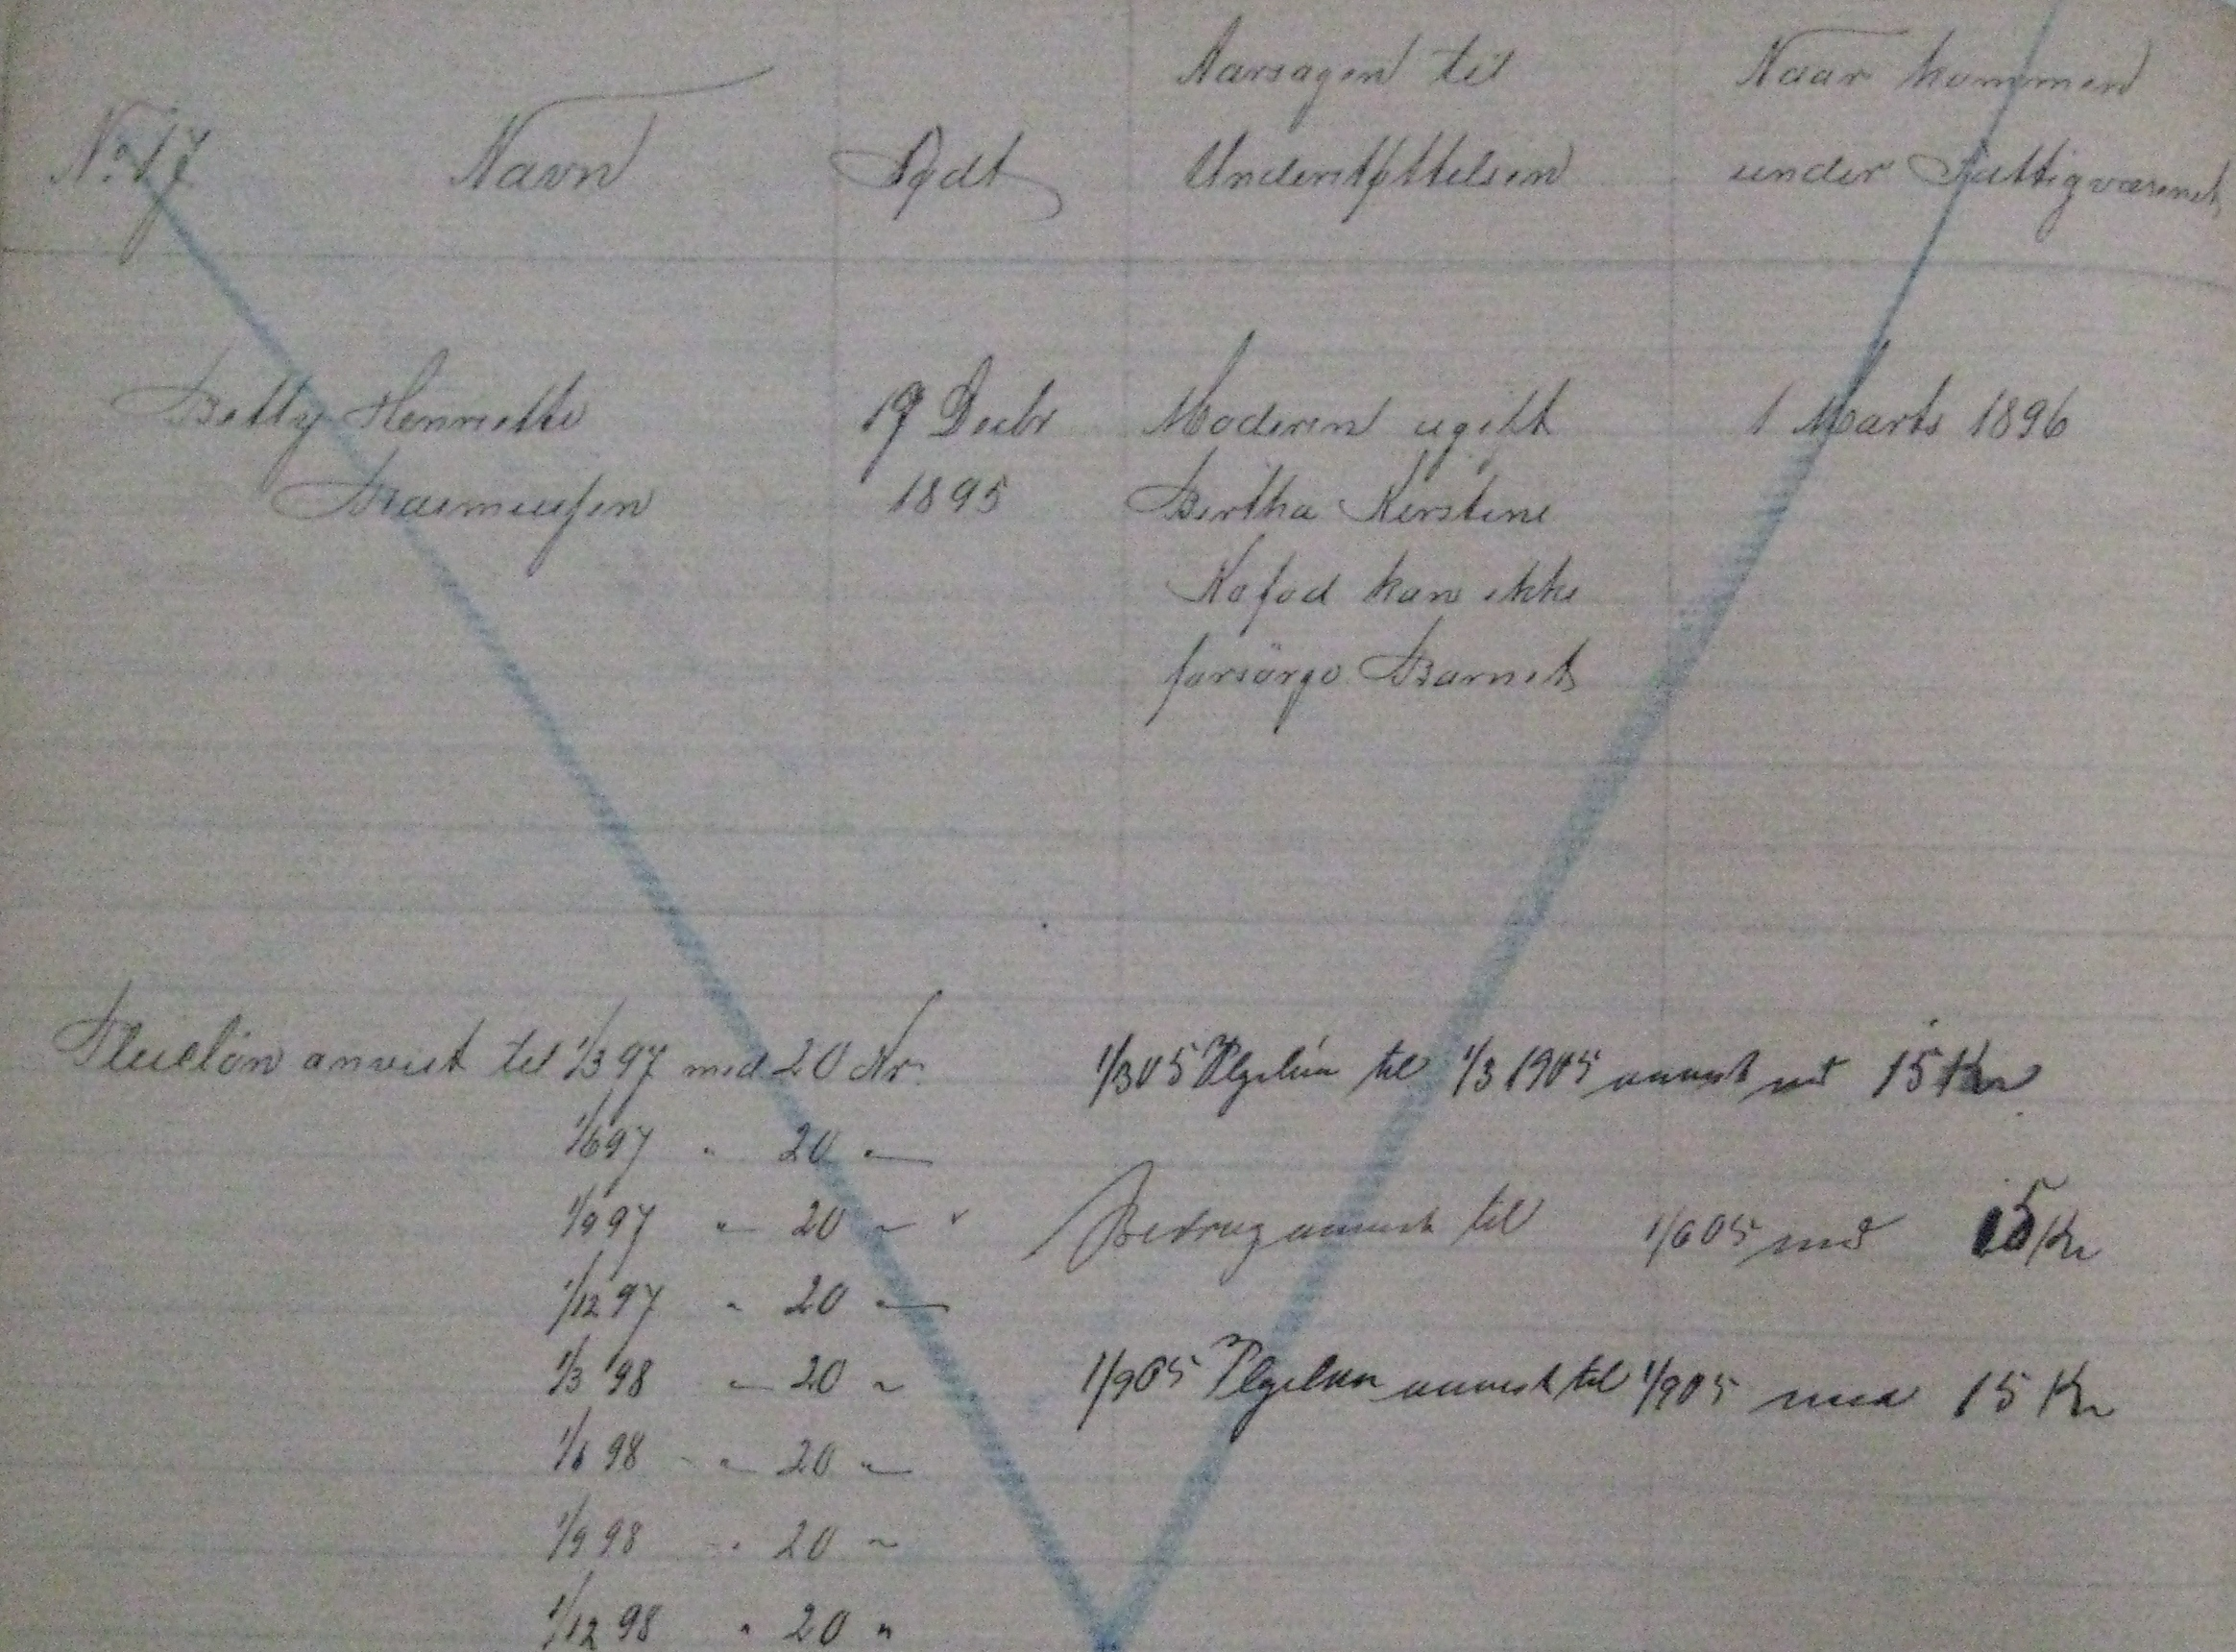 No. 17
Navn
Födt
Aarsagen til
Understøttelsen
Naar kommen
under Fattigvæsenet
Betty Henriette
Rasmussen
19 Decbr
1895
Moderen ugift
Bertha Kirstine
Kofod kan ikke
forsörge Barnet
1 Marts 1896
Pleielön anvist til 1/3 97 med 20 Kr.
1/6 97 " 20 "
1/9 97 " 20 "
1/12 97 " 20 "
1/3 98 " 20 "
1/6 98 " 20 "
1/9 98 " 20 "
1/12 98 " 20 "
1/3 05 Plejelön til 1/3 1905 anvist med 15 Kr
Bidrag anvist til 1/6 05 med 15 Kr
1/9 05 Plejeløn anvist til 1/9 05 med 15 Kr